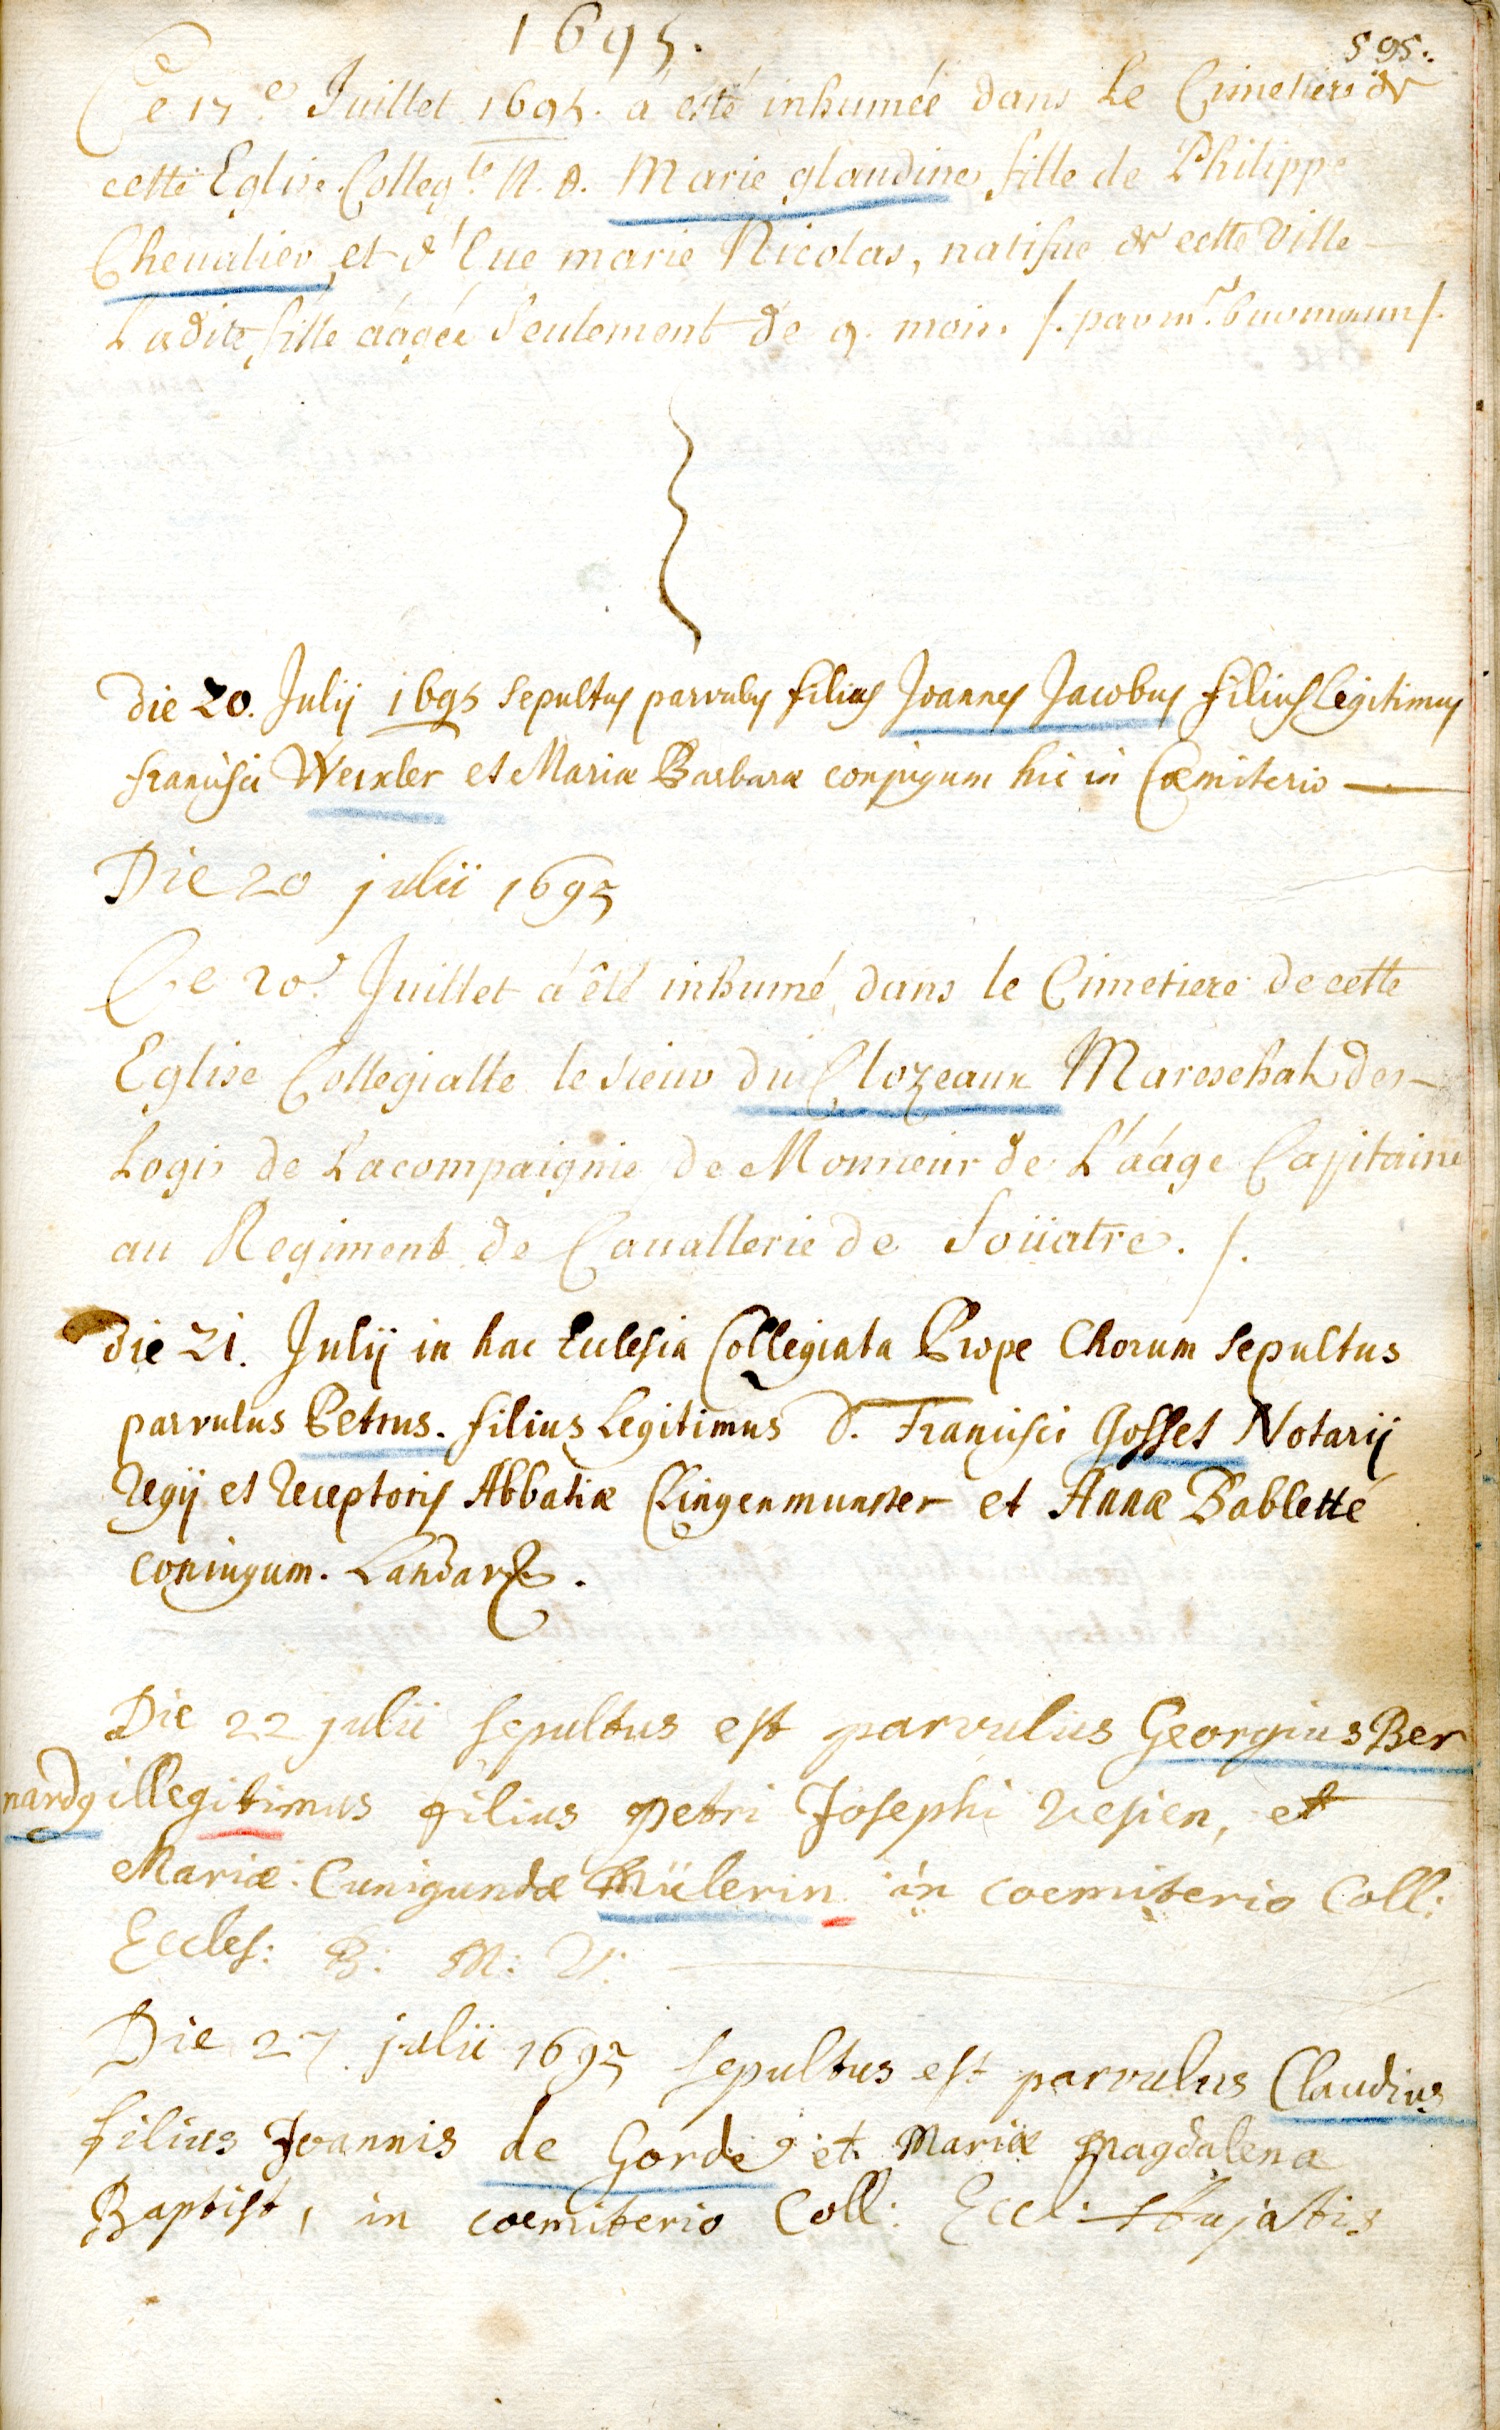 1695.
595.
Ce 17.e Juillet 1695. a esté inhumée dans Le Cimetiere de
cette Eglise Colleg.te N. D. Marie glaudine fille de Philippe
Cheualier et d'Eue marie Nicolas, natifue de cette Ville
Ladite fille aágée Seulement de 9. mois. /. par mr.
Die 20. Julij 1695 sepultus parvulus filius Joannes Jacobus filius legitimus
francisci Wexler et Mariæ Barbaræ conjugum hic in Cœmiterio
Die 20 julii 1695
Ce 20e. Juillet a êté inhumé dans le Cimetiere de cette
Eglise Collegialle le sieur du Clozeaux Mareschal des
Logis de L'acompaignie de Monsieur de L'áage Capitaine
au Regiment de Cauallerie de Soüatre. /.
Die 21. Julij in hac Ecclesia Collegiata Prope Chorum sepultus
parvulus Petrus. filius Legitimus D. Francisci Gosset Notarij
Regij et Receptoris Abbatiæ Clingenmunster et Annæ Bablette
coniugum.
Die 22 julii sepultus est parvulus Georgius Ber
nardg illegitimus filius petri Josephi Vesien, et
Mariæ Cunigundæ Mülerin in coemiterio Coll:
Eccles: B: M: V:
Die 27 julii 1695 sepultus est parvulus Claudius
filius Joannis de Gorde et Mariæ Magdalena
Baptist, in coemiterio Coll: Eccl: hujatis